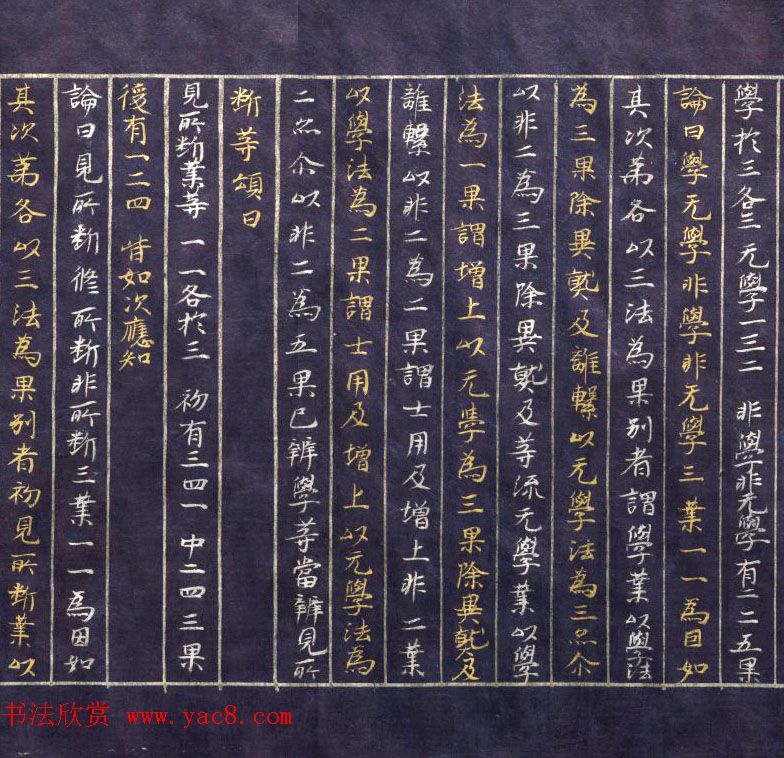 學於三各三 无學一三二 非學非无學 有二二五果
論曰學无學非學非无學三業一一為因如
其次第各以三法為果別者謂學業以學法
為三果除異熟及離繫以无學法為三亦尒
以非二為三果除異熟及等流无學業以學
法為一果謂增上以无學為三果除異熟及
離繫以非二為二果謂士用及增上非二業
以學法為二果謂士用及增上以无學法為
二亦尒以非二為五果已辨學等當辨見所
斷等頌曰
見所斷業等 一一各於三 初有三四一 中二四三果
後有一二四 皆如次應知
論曰見所斷修所斷非所斷三業一一為因如
其次第各以三法為果別者初見所斷業以
书法欣赏 www.yac8.com